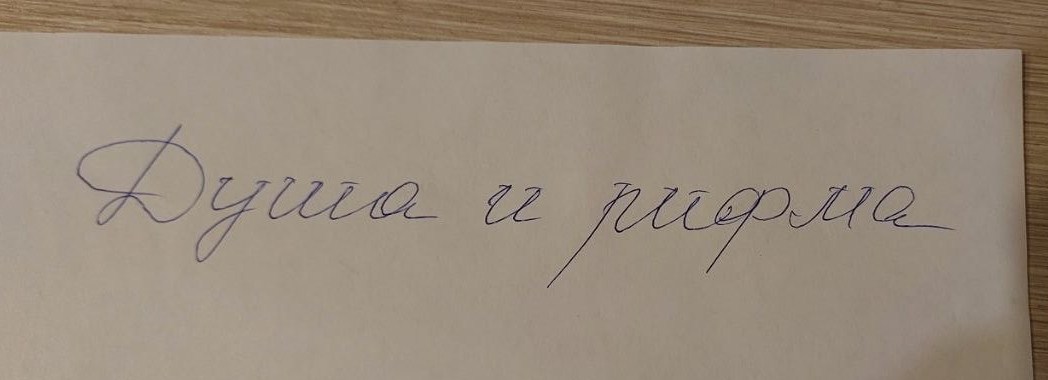 Душа и рифма